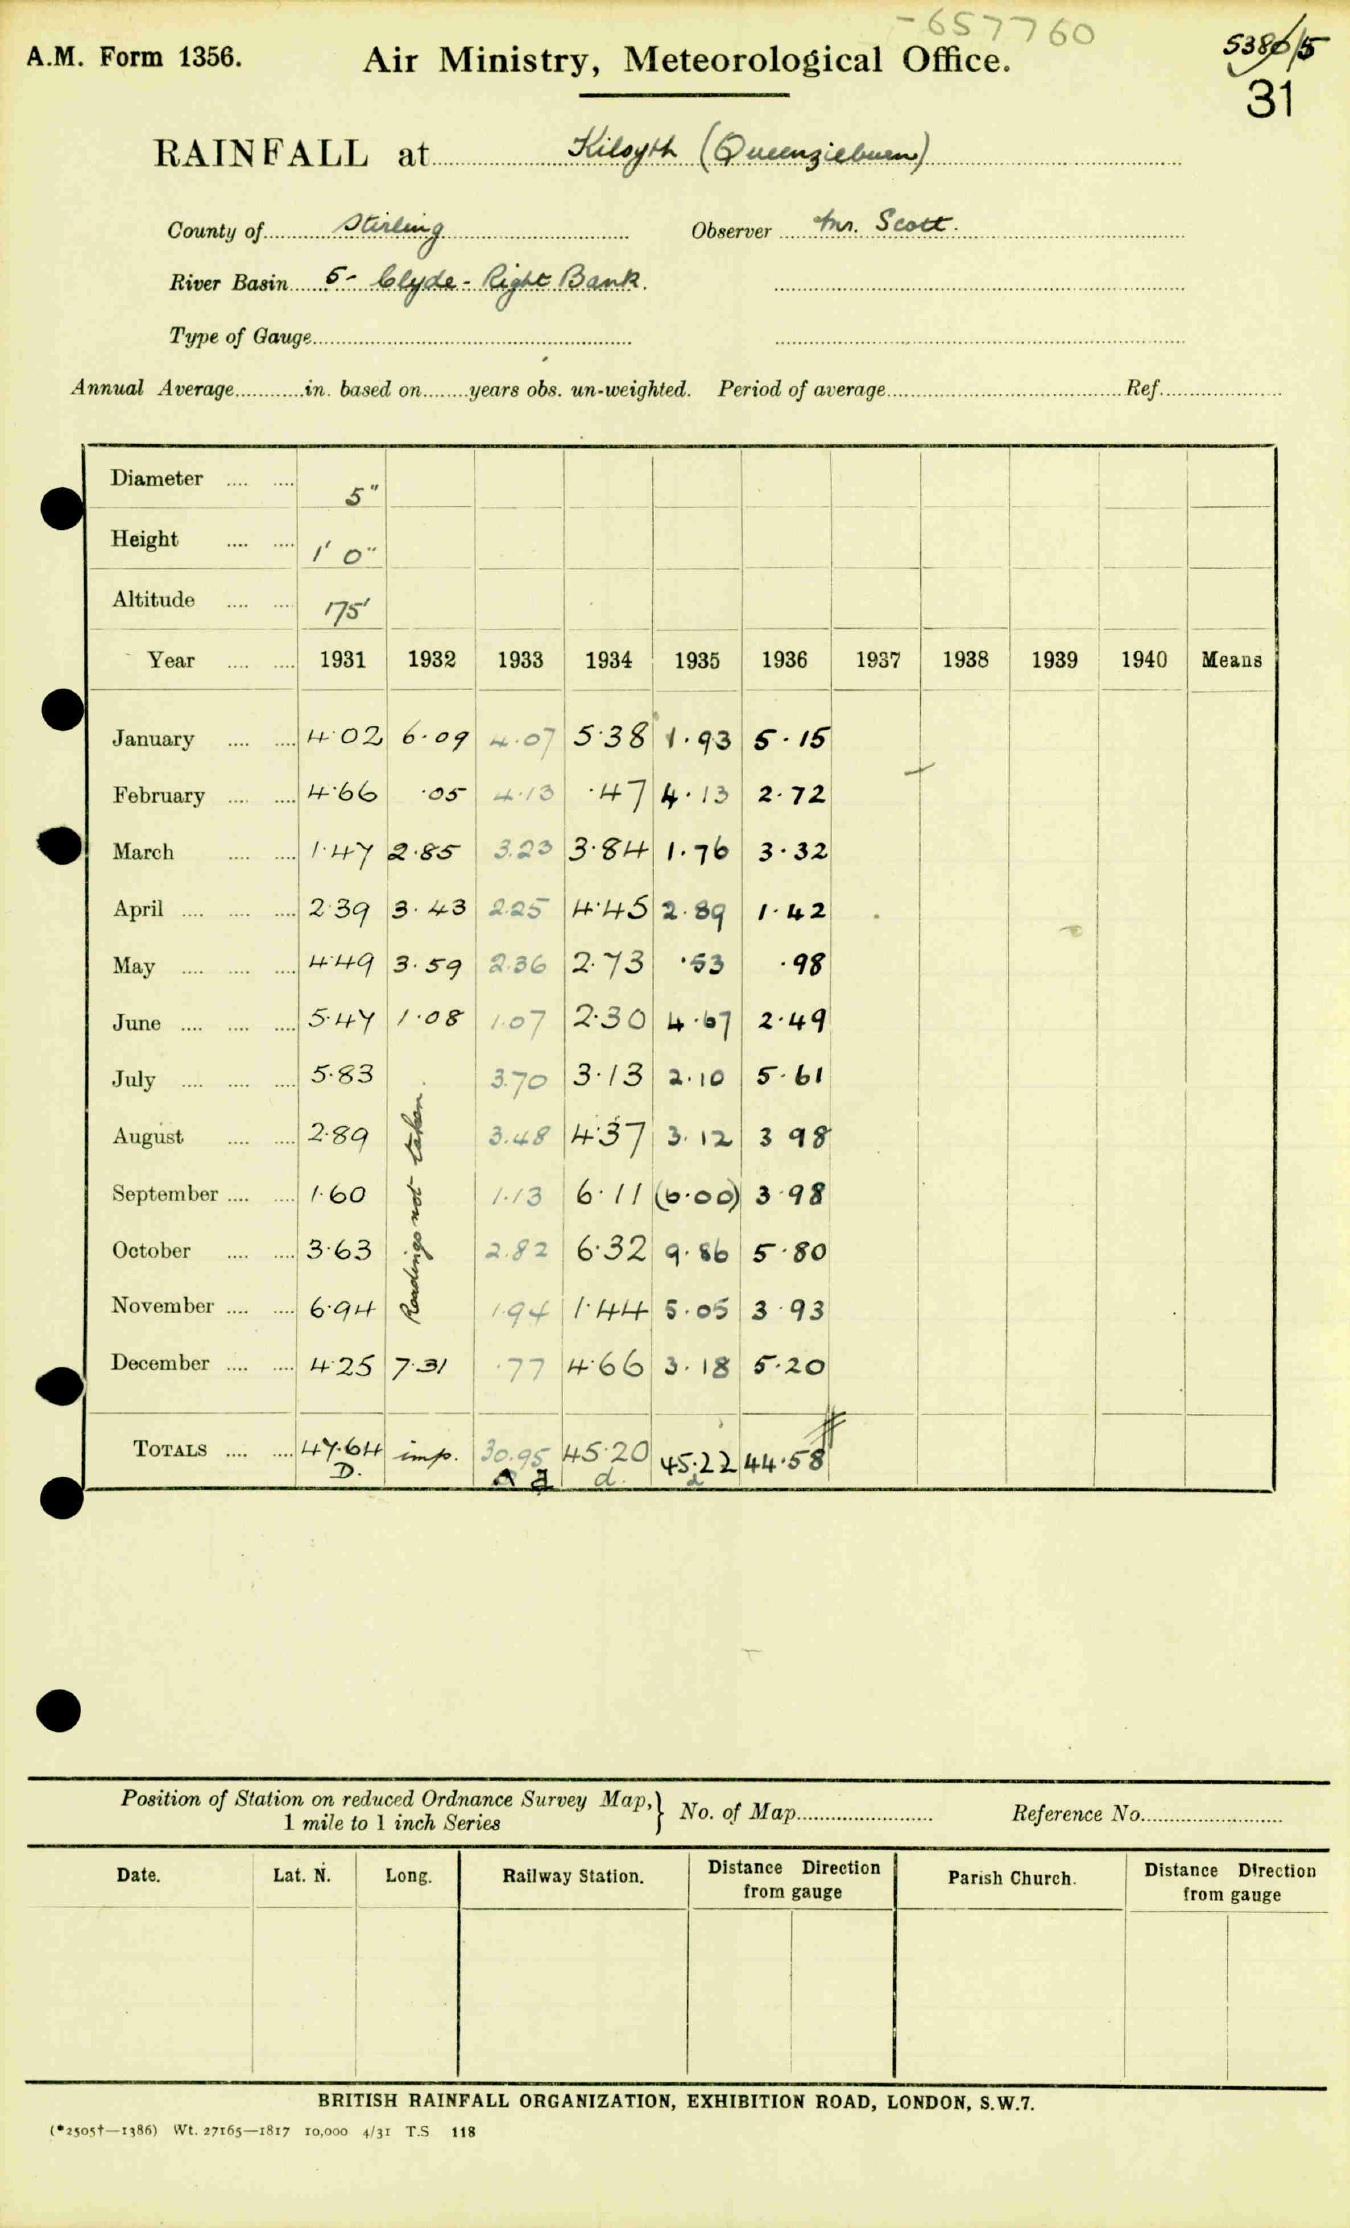 -657760
A.M. Form 1356. Air Ministry, Meteorological Office. 5386/5
31
RAINFALL at Kilsyth (Queenzieburn)
County of Stirling Observer Mr. Scott.
River Basin 5- Clyde - Right Bank.
Type of Gauge
Annual Average in. based on years obs. un-weighted. Period of average Ref.
Diameter 5"
Height 1' 0"
Altitude 175'
Year 1931 1932 1933 1934 1935 1936 1937 1938 1939 1940 Means
January 4.02 6.09 4.07 5.38 1.93 5.15
February 4.66 .05 4.13 .47 4.13 2.72
March 1.47 2.85 3.23 3.84 1.76 3.32
April 2.39 3.43 2.25 4.45 2.89 1.42
May 4.49 3.59 2.36 2.73 .53 .98
June 5.47 1.08 1.07 2.30 4.67 2.49
July 5.83 3.70 3.13 2.10 5.61
August 2.89 3.48 4.37 3.12 3 98
September 1.60 1.13 6.11 (6.00) 3.98
October 3.63 2.82 6.32 9.86 5.80
November 6.94 1.94 1.44 5.05 3.93
December 4.25 7.31 .77 4.66 3.18 5.20
Readings not taken
TOTALS 47.64 imp. 30.95 45.20 45.22 44.58
D. d. d
Position of Station on reduced Ordnance Survey Map, } No. of Map Reference No.
1 mile to 1 inch Series
Date. Lat. N. Long. Railway Station. Distance Direction from gauge Parish Church. Distance Direction from gauge
BRITISH RAINFALL ORGANIZATION, EXHIBITION ROAD, LONDON, S.W.7.
(*2505†—1386) Wt. 27165—1817 10,000 4/31 T.S 118